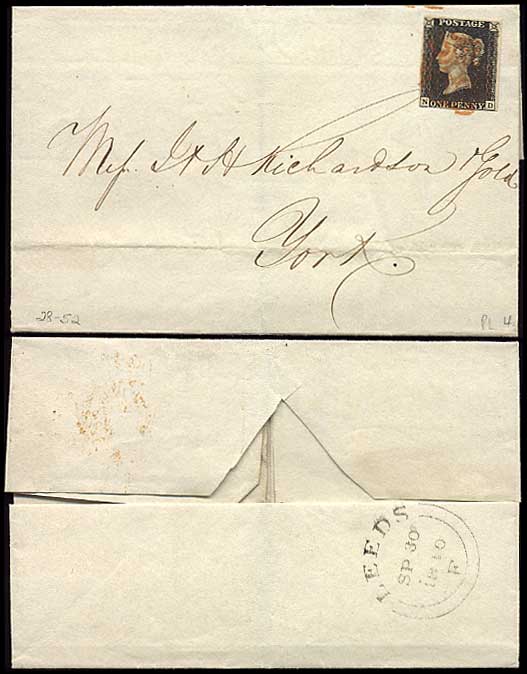 POSTAGE
N ONE PENNY D
Mess. J & H Richardson & Gold
York.
28-52
PL 4
LEEDS
SP 30
1840
F